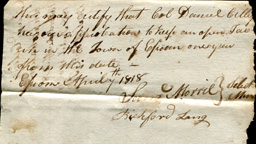 This may certify that Col Daniel Cilley
has our approbation to keep an open Tav
ern in the Town of Epsom one year
from this date —
Epsom April 7th 1818
Morril Select
Bickford Lang men